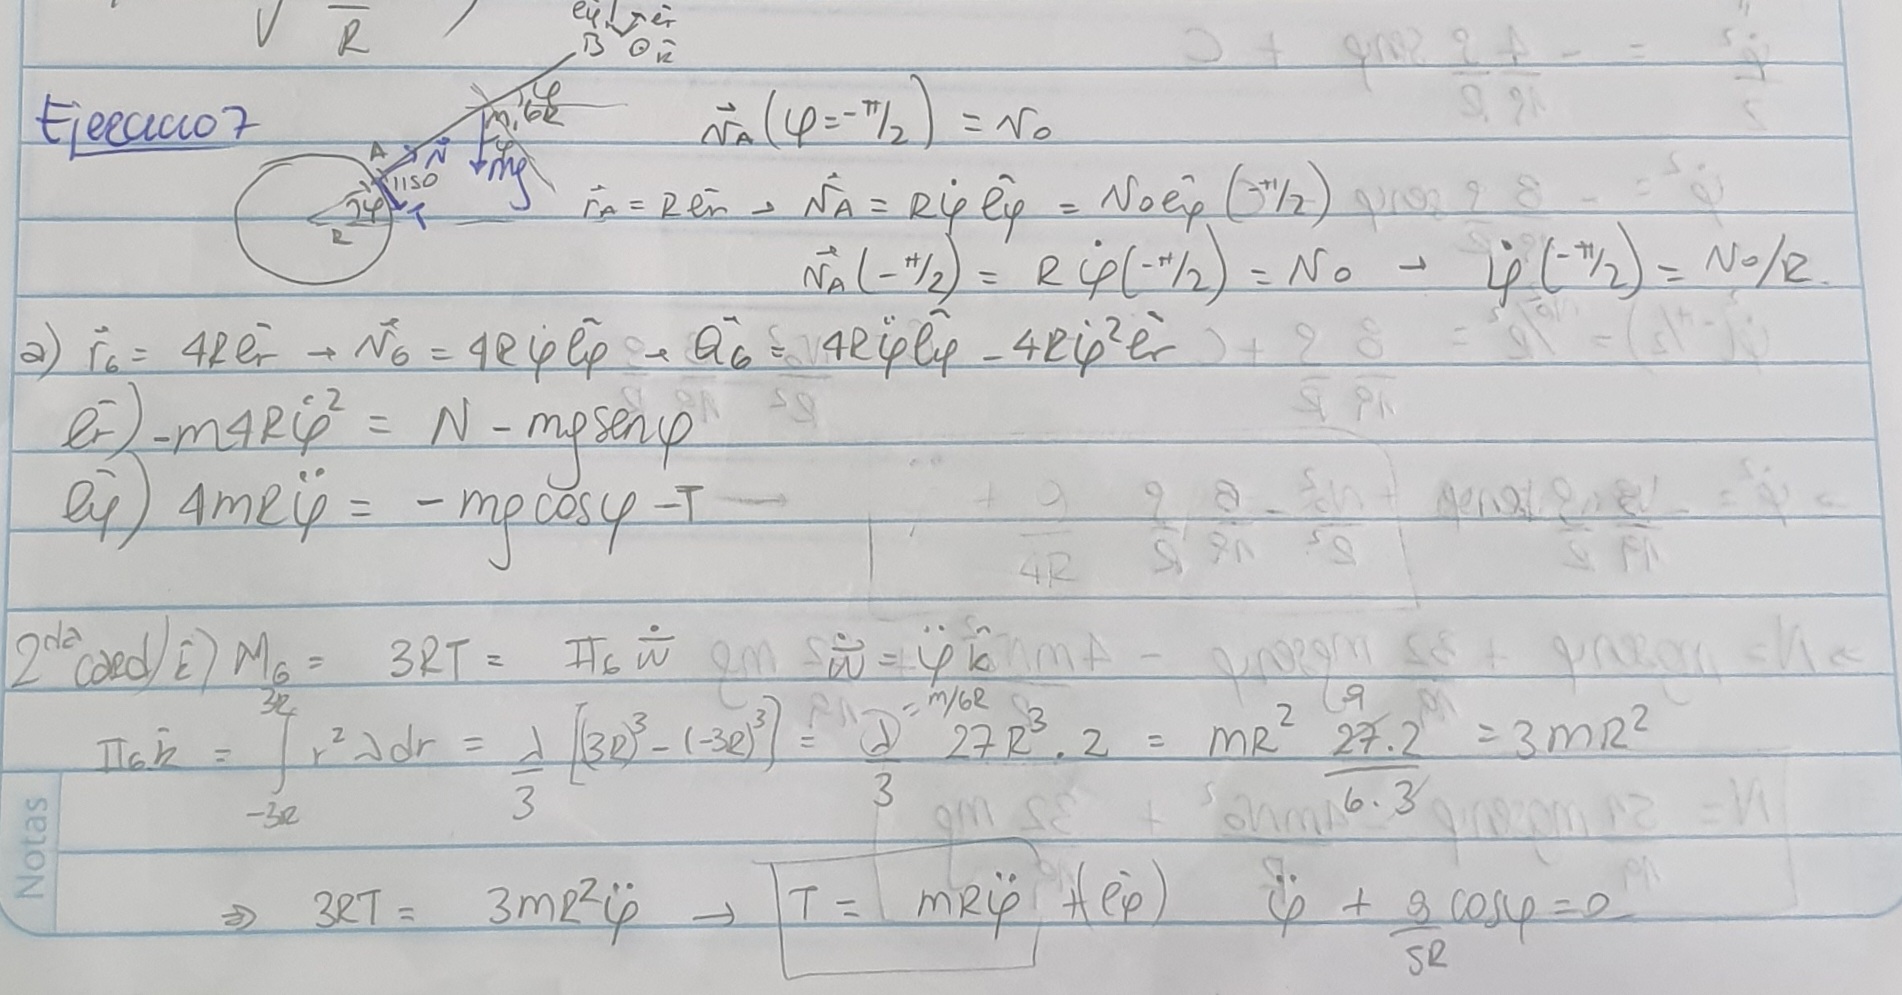 √ R )
êφ êr
B ⊙ k̂
Ejercicio 7
φ
m, 6R
A N
mg
φ
liso
φ T
R
v⃗A (φ = -π/2) = v0
r⃗A = R êr → v⃗A = Rφ̇ êφ = v0 êφ (-π/2)
v⃗A (-π/2) = Rφ̇(-π/2) = v0 → φ̇(-π/2) = v0/R
a) r⃗G = 4R êr → v⃗G = 4Rφ̇ êφ → a⃗G = 4Rφ̈ êφ - 4Rφ̇² êr
êr) -m4Rφ̇² = N - mg senφ
êφ) 4mRφ̈ = -mg cosφ - T
2da card/k̂) MG = 3RT = IIG ẇ ẇ = φ̈ k̂
IIG k̂ = ∫_{-3R}^{3R} r² λ dr = λ/3 [(3R)³ - (-3R)³] = λ/3 27R³ . 2 = mR² 27.2/6.3 = 3mR²
= m/6R 9
⇒ 3RT = 3mR²φ̈ → T = mRφ̈ + (êφ) φ̈ + g/5R cosφ = 0
Notas